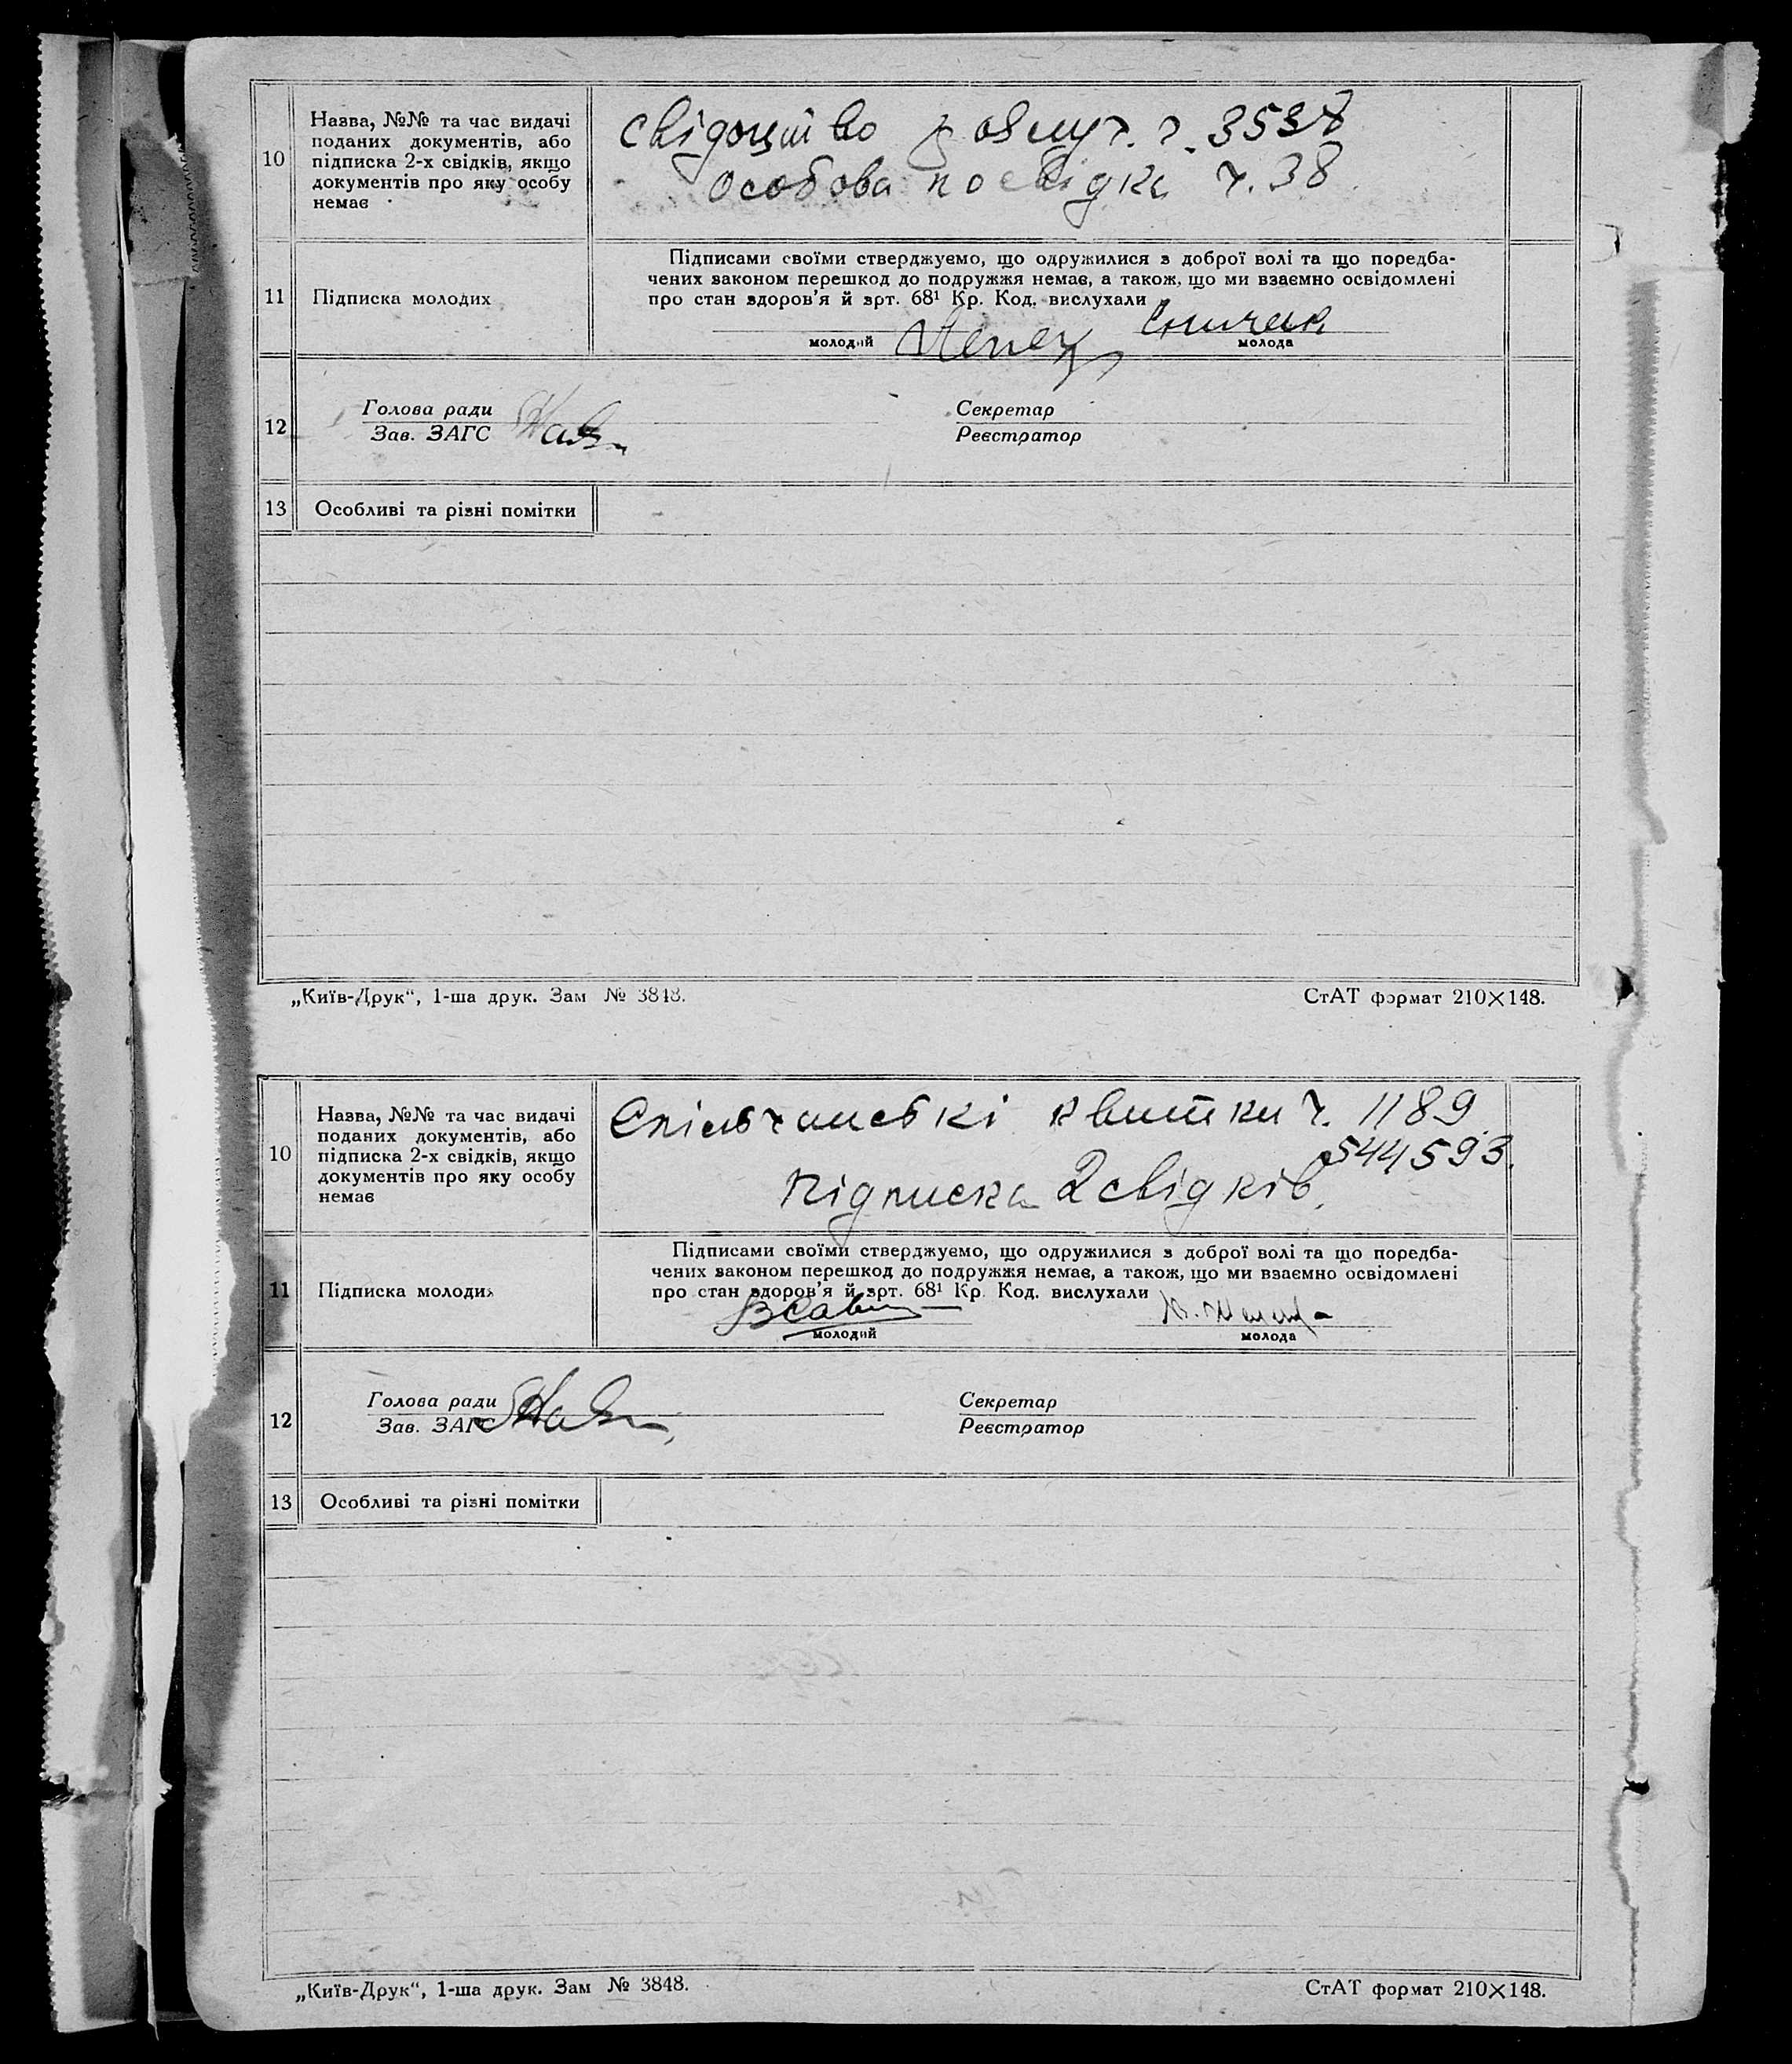 10
Назва, №№ та час видачі
поданих документів, або
підписка 2-х свідків, якщо
документів про яку особу
немає
Свідоцтво
Особова посвідка ч. 38
11
Підписка молодих
Підписами своїми стверджуємо, що одружилися з доброї волі та що поредба-
чених законом перешкод до подружжя немає, а також, що ми взаємно освідомлені
про стан здоров'я й арт. 68¹ Кр. Код. вислухали
молодий
молода
12
Голова ради
Зав. ЗАГС
Секретар
Реєстратор
13
Особливі та різні помітки
„Київ-Друк“, 1-ша друк. Зам № 3848.
СтАТ формат 210×148.
10
Назва, №№ та час видачі
поданих документів, або
підписка 2-х свідків, якщо
документів про яку особу
немає
Спільчанські квитки ч. 1189
544593.
Підписка 2 свідків.
11
Підписка молодих
Підписами своїми стверджуємо, що одружилися з доброї волі та що поредба-
чених законом перешкод до подружжя немає, а також, що ми взаємно освідомлені
про стан здоров'я й арт. 68¹ Кр. Код. вислухали
молодий
молода
12
Голова ради
Зав. ЗАГС
Секретар
Реєстратор
13
Особливі та різні помітки
„Київ-Друк“, 1-ша друк. Зам № 3848.
СтАТ формат 210×148.